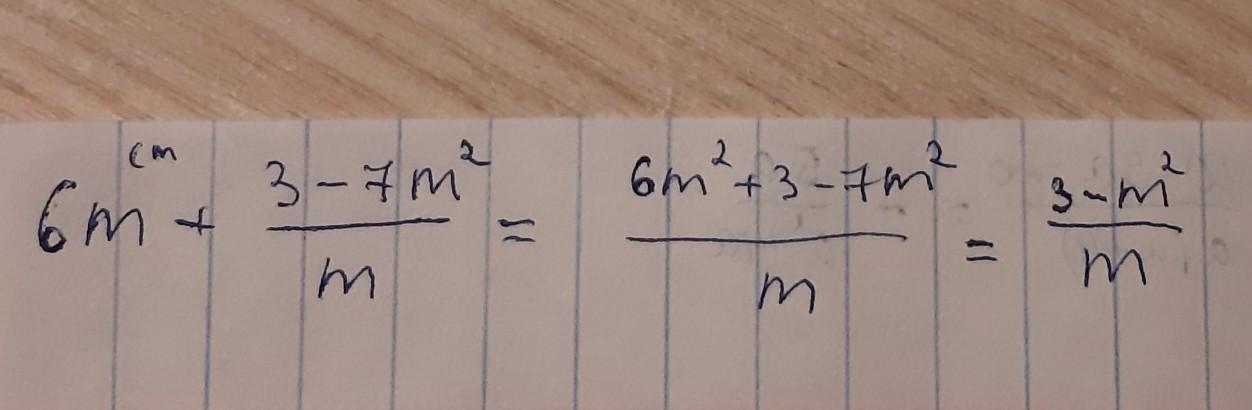 6m^(m + (3 - 7m²)/m = (6m² + 3 - 7m²)/m = (3 - m²)/m